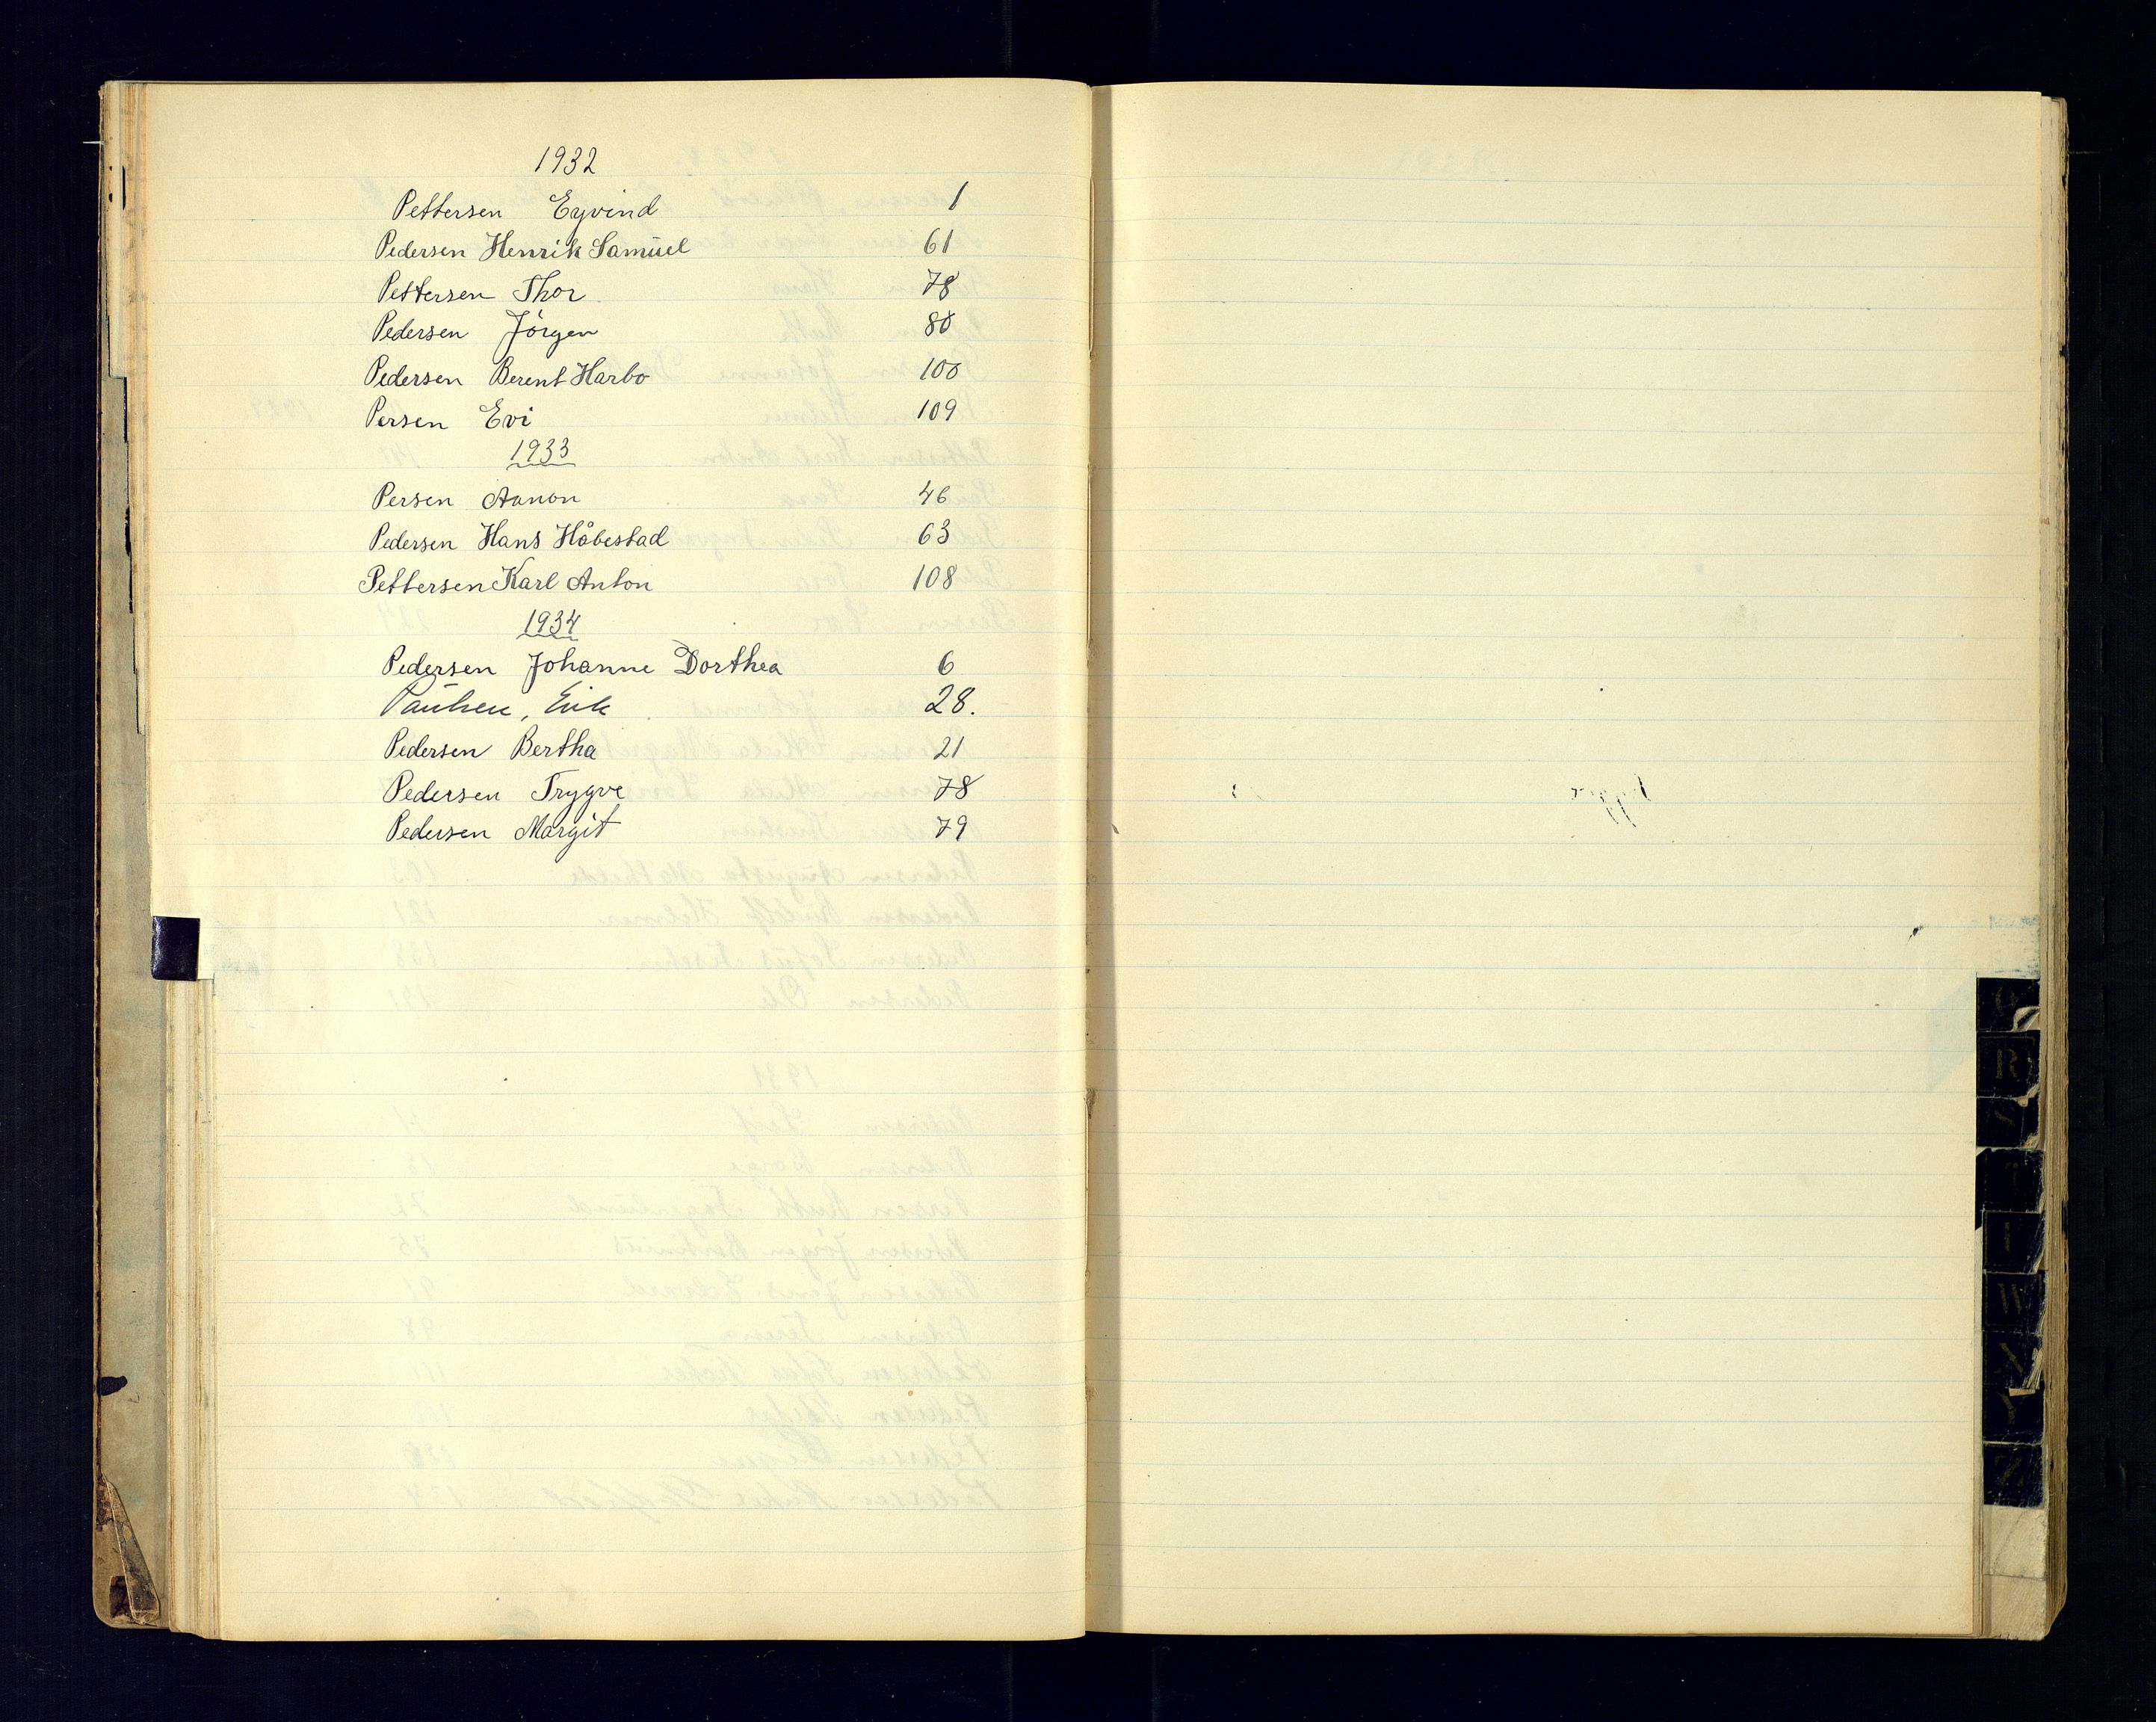 1932
Pettersen Eyvind 1
Pedersen Henrik Samuel 61
Pettersen Thor 78
Pedersen Jörgen 80
Pedersen Berent Harbo 100
Persen Evi 109
1933
Persen Aanon 46
Pedersen Hans Håbestad 63
Pettersen Karl Anton 108
1934
Pedersen Johanne Dorthea 6
Paulsen, Erik 28.
Pedersen Bertha 21
Pedersen Trygve 78
Pedersen Margit 79
R
W
Y
Z